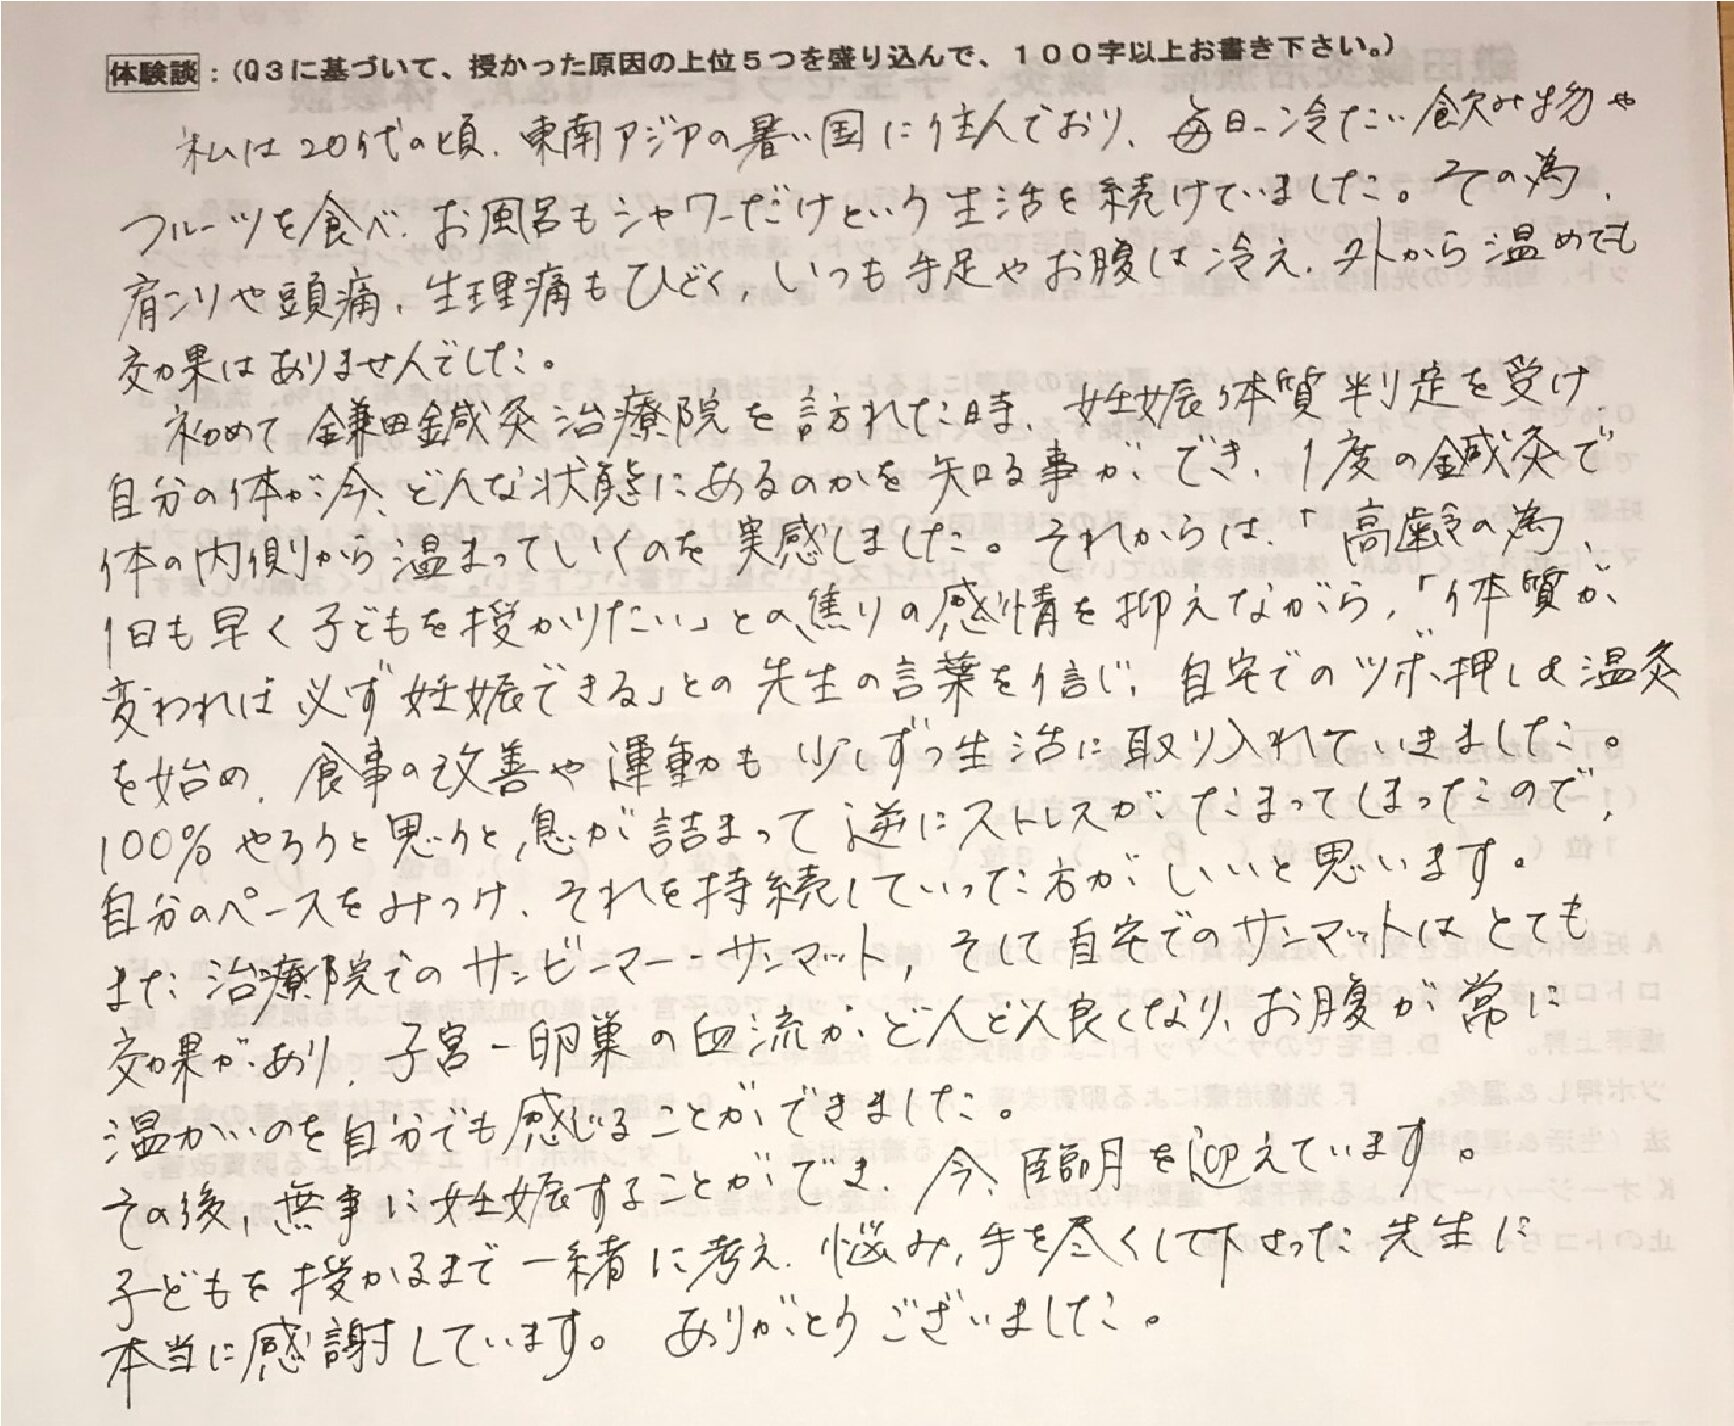 体験談：(Q3に基づいて、授かった原因の上位5つを盛り込んで、100字以上お書き下さい。)
私は20代の頃、東南アジアの暑い国に住んでおり、毎日冷たい飲み物や
フルーツを食べ、お風呂もシャワーだけという生活を続けていました。その為、
肩コリや頭痛、生理痛もひどく、いつも手足やお腹は冷え、外から温めても
効果はありませんでした。
初めて鎌田鍼灸治療院を訪れた時、妊娠体質判定を受け
自分の体が今、どんな状態にあるのかを知る事ができ、1度の鍼灸で
体の内側から温まっていくのを実感しました。それからは、「高齢の為、
1日も早く子どもを授かりたい」との焦りの感情を抑えながら、「体質が
変われば必ず妊娠できる」との先生の言葉を信じ、自宅でのツボ押しや温灸
を始め、食事の改善や運動も少しずつ生活に取り入れていきました。
100%やろうと思うと、息が詰まって逆にストレスがたまってしまったので、
自分のペースをみつけ、それを持続していった方がいいと思います。
また治療院でのサンビーマー・サンマット、そして自宅でのサンマットはとても
効果があり、子宮－卵巣の血流がどんどん良くなり、お腹が常に
温かいのを自分でも感じることができました。
その後、無事に妊娠することができ、今、臨月を迎えています。
子どもを授かるまで一緒に考え、悩み、手を尽くして下さった先生に
本当に感謝しています。 ありがとうございました。